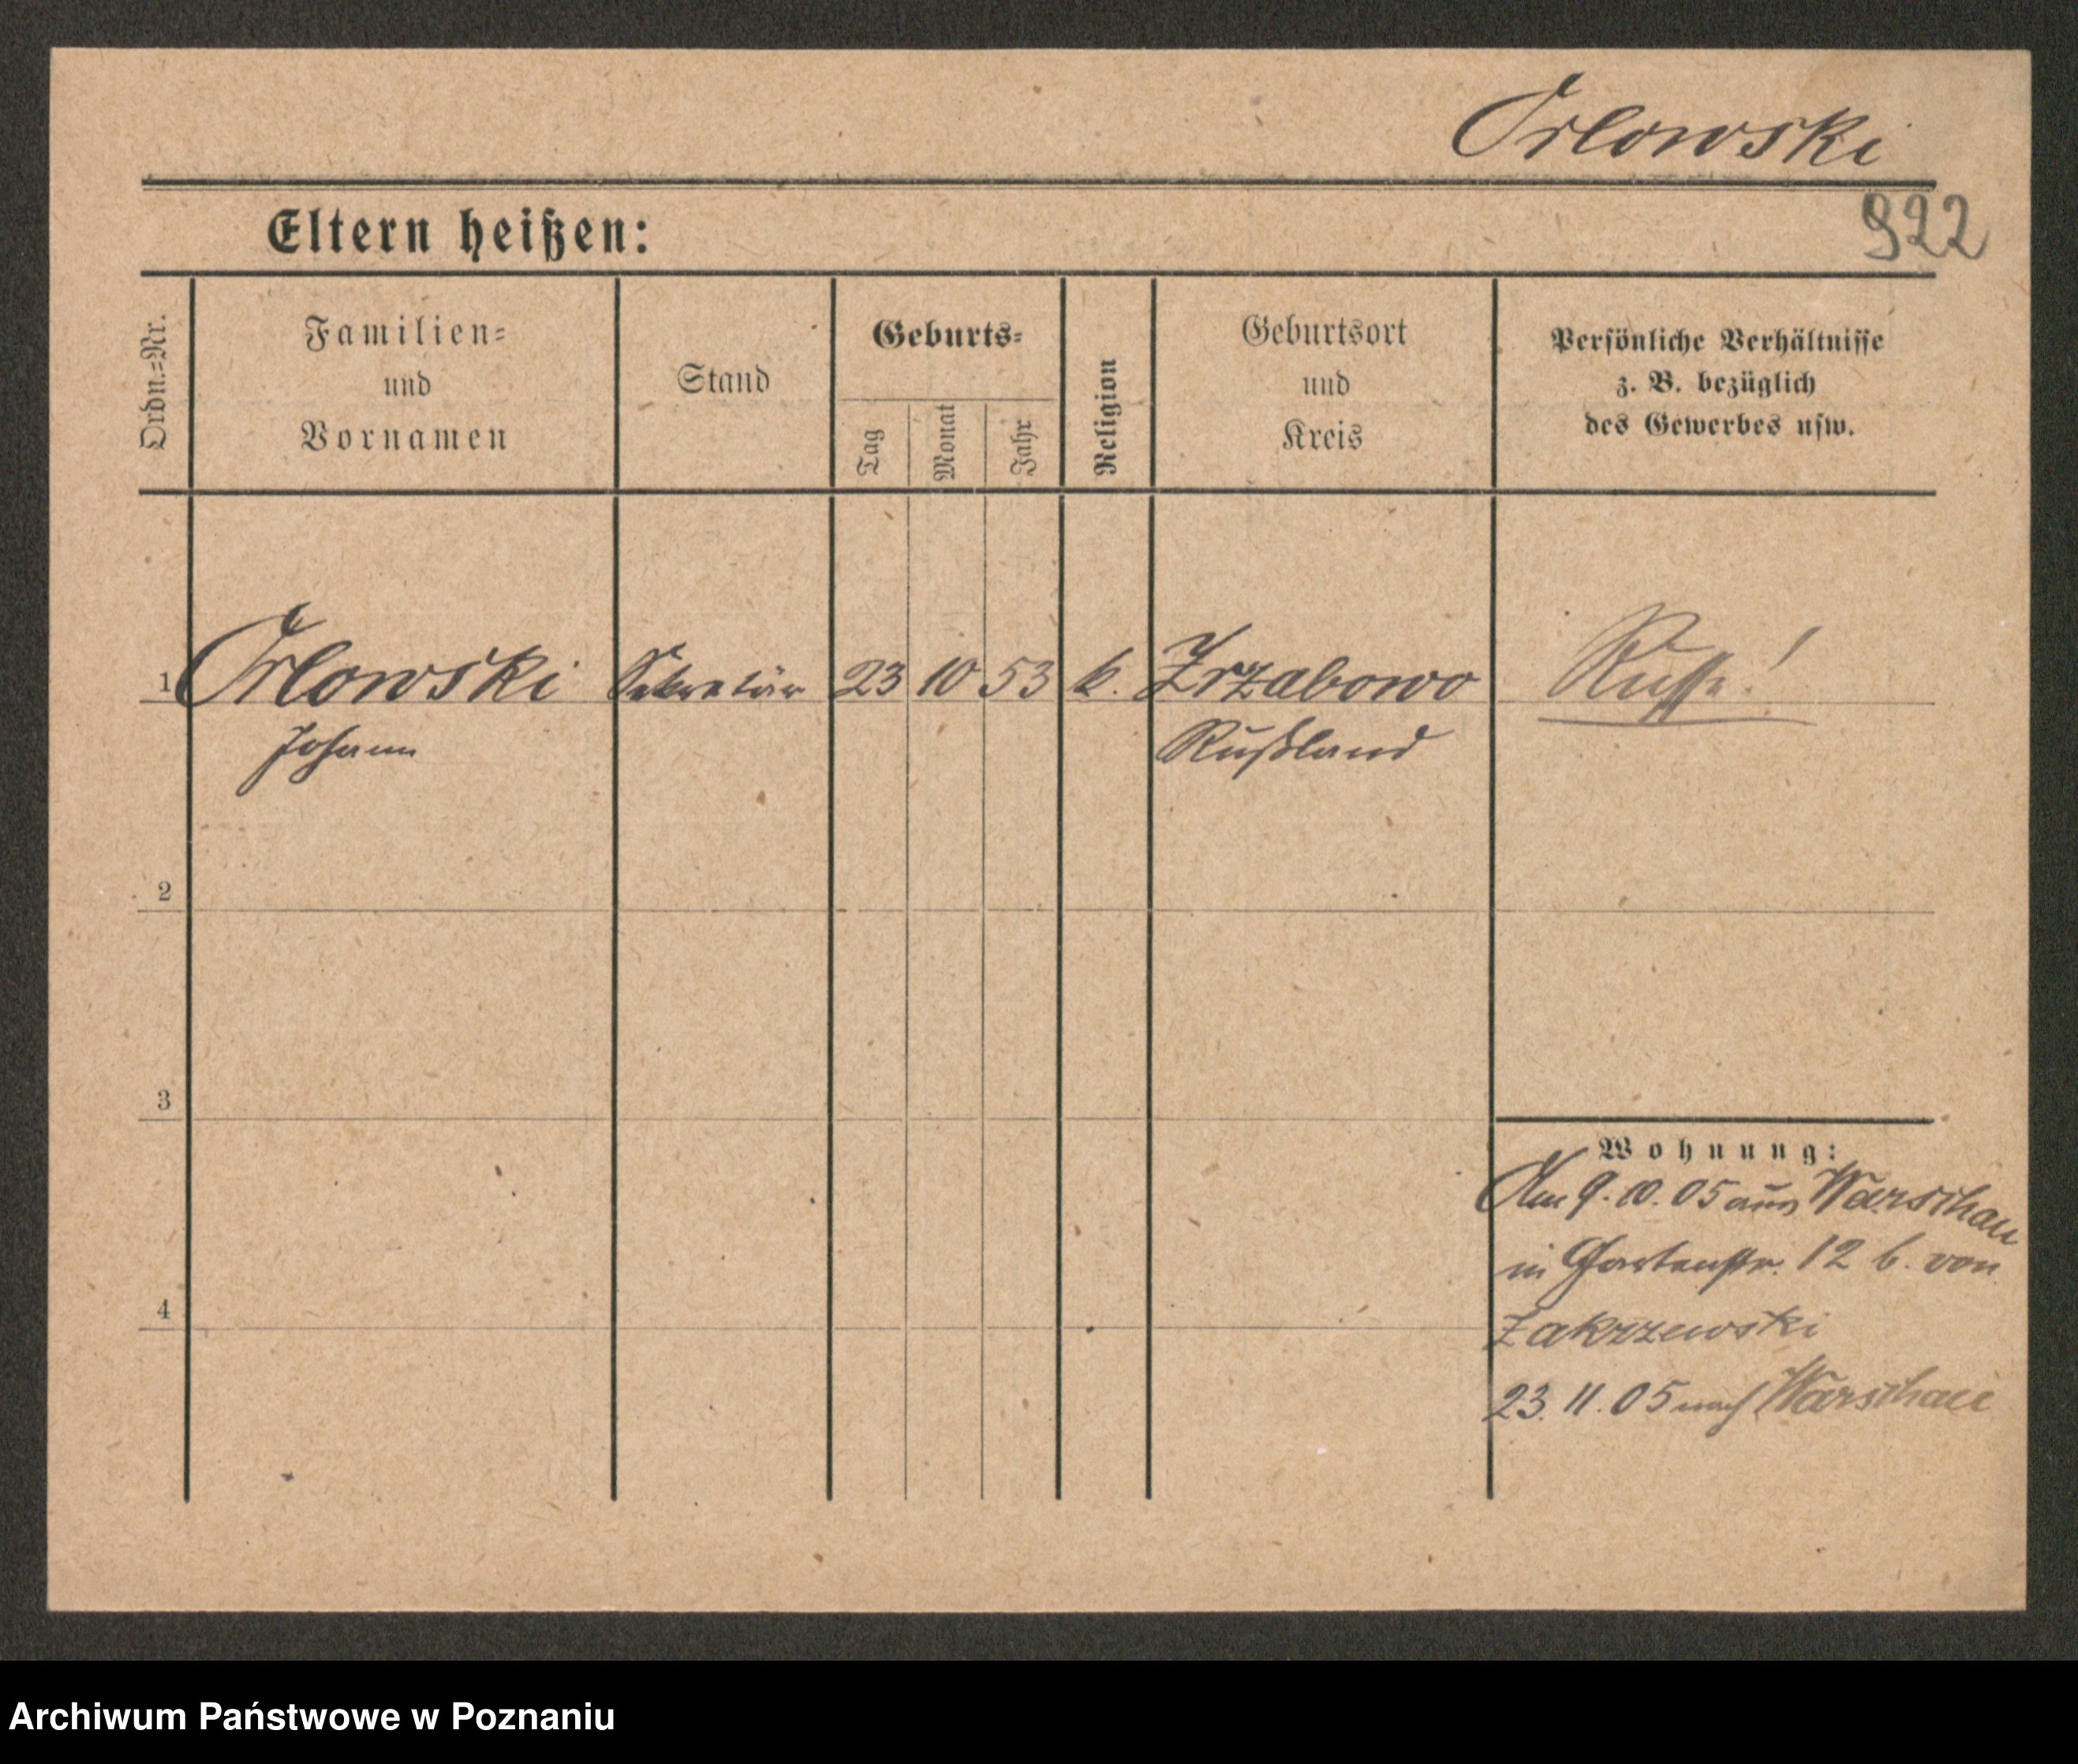 Orlowski
Eltern heißen:
922
Ordn.-Nr.
Familien-
und
Vornamen
Stand
Geburts-
Tag
Monat
Jahr
Religion
Geburtsort
und
Kreis
Persönliche Verhältnisse
z. B. bezüglich
des Gewerbes usw.
1 Orlowski Sekretär 23 10 53 k. Zrzabowo Russe!
Johann Rußland
2
3
Wohnung:
Am 9. 10. 05 aus Warschau
in Gartenstr. 12 b. von
4
Zakrzewski
23. 11. 05 nach Warschau
Archiwum Państwowe w Poznaniu